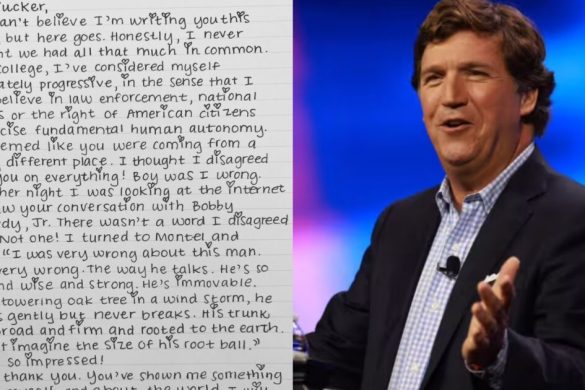 ucker,
an't believe I'm writing you this
but here goes. Honestly, I never
t we had all that much in common.
ollege, I've considered myself
ately progressive, in the sense that I
elieve in law enforcement, national
s or the right of American citizens
cise fundamental human autonomy.
emed like you were coming from a
different place. I thought I disagreed
you on everything! Boy was I wrong.
her night I was looking at the internet
w your conversation with Bobby
edy, Jr. There wasn't a word I disagreed
Not one! I turned to Montel and
"I was very wrong about this man.
very wrong. The way he talks. He's so
nd wise and strong. He's immovable.
towering oak tree in a wind storm, he
s gently but never breaks. His trunk
road and firm and rooted to the earth.
t imagine the size of his root ball."
so impressed!
thank you. You've shown me something
and about the world. I will